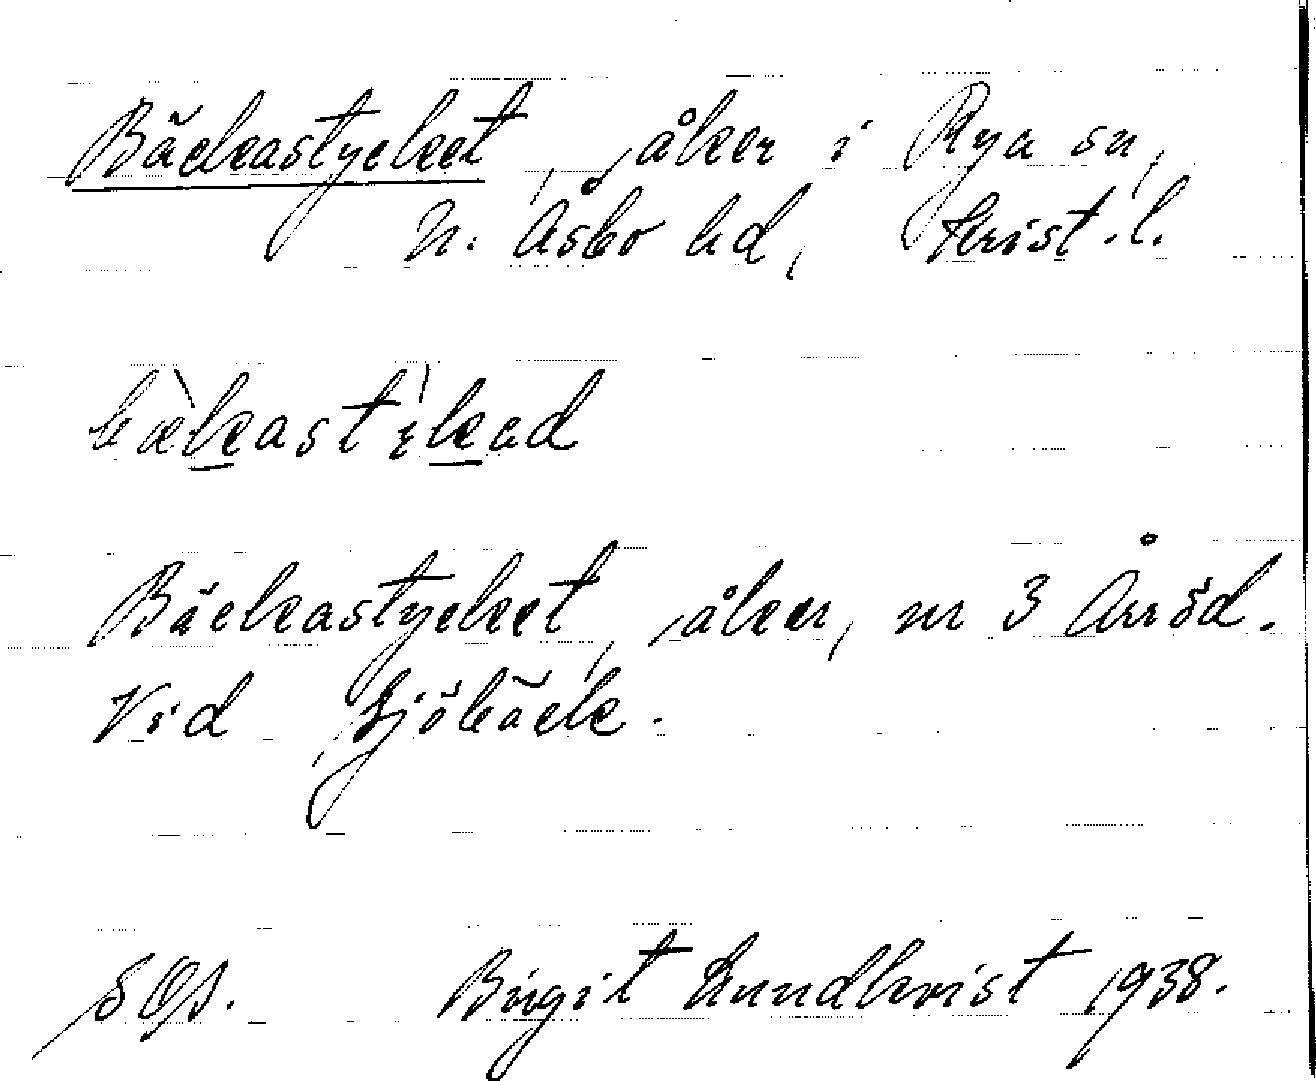 Bäckastycket, åker i Rya sn,
N. Åsbo hd, Krist. l.
bækastikad
Bäckastycket, åker, nr 3 Arröd.
Vid Sjöbäck.
SOA. Birgit Lundkvist 1938.